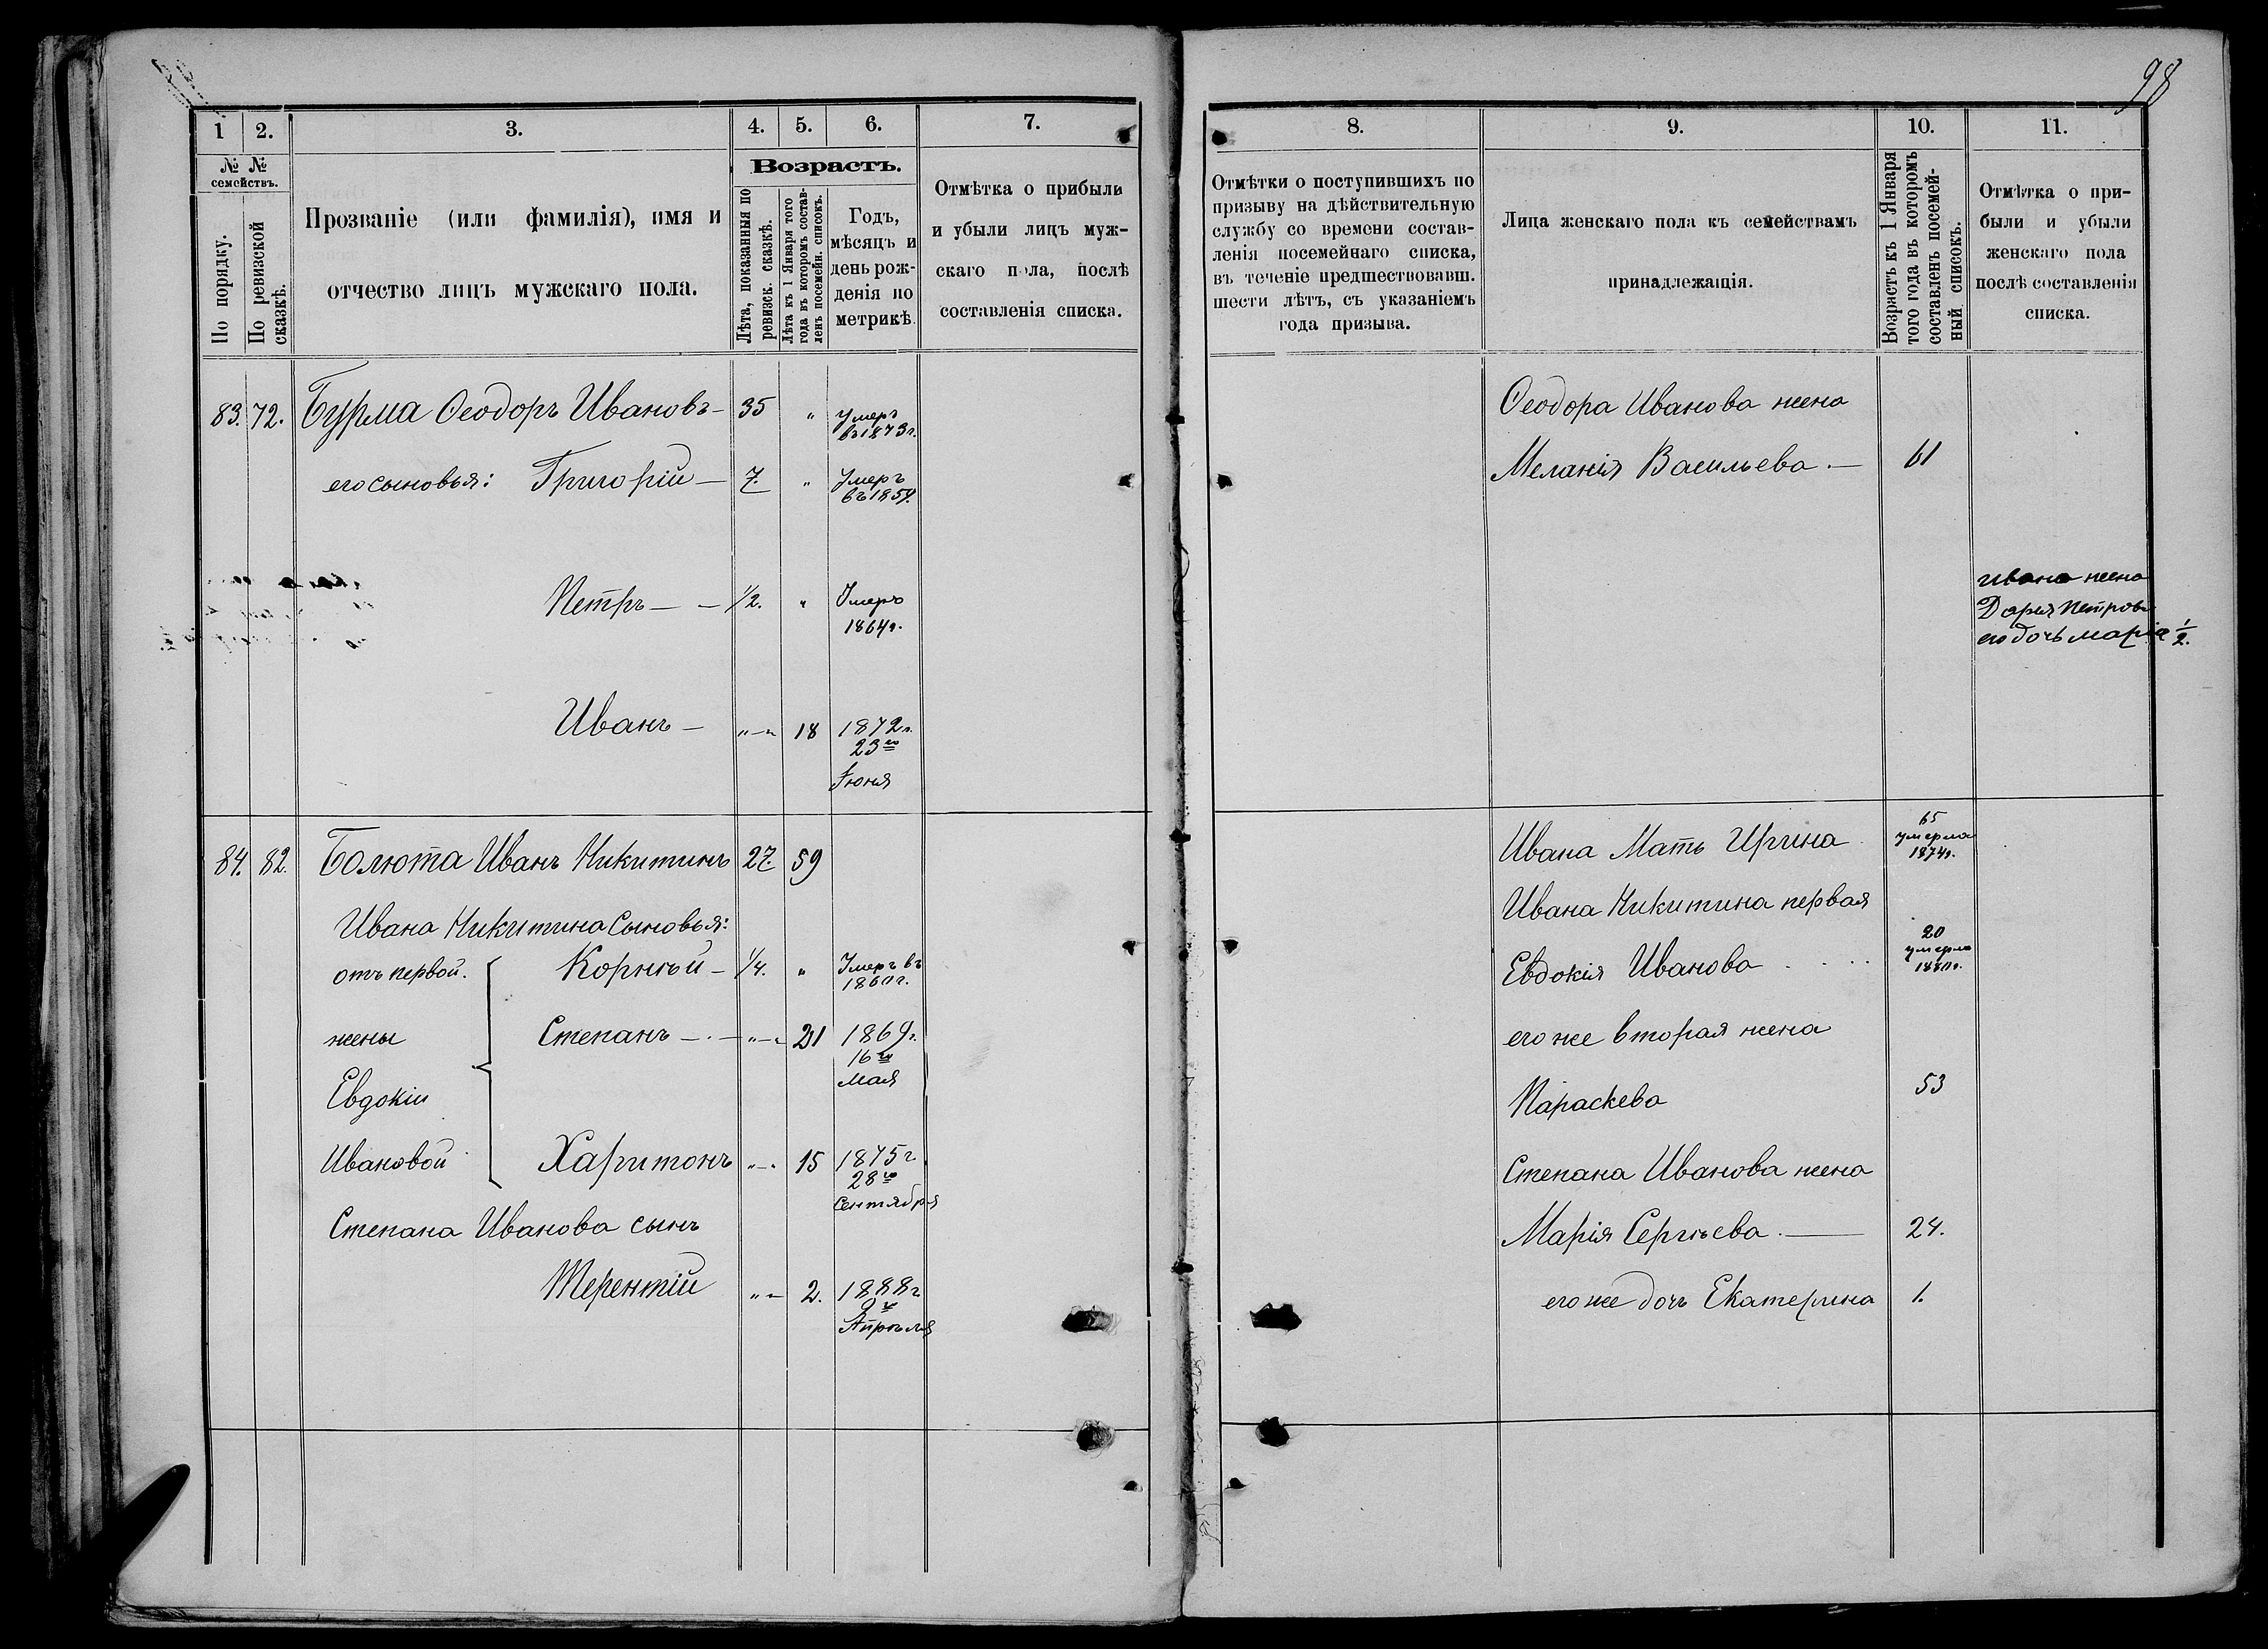 98
1 2. 3. 4. 5. 6. 7.
№ № семействъ.
По порядку.
По ревизской сказкѣ.
Прозваніе (или фамилія), имя и
отчество лицъ мужскаго пола.
Возрастъ.
Лѣта, показанныя по
ревизск. сказкѣ.
Лѣта къ 1 Января того
года въ которомъ состав-
ленъ посемейн. списокъ.
Годъ,
мѣсяцъ и
день рож-
денія по
метрикѣ.
Отмѣтка о прибыли
и убыли лицъ муж-
скаго пола, послѣ
составленія списка.
83. 72. Бурма Ѳеодоръ Ивановъ – 35 " умеръ
въ 1873 г.
его сыновья: Григорій – 7. " Умеръ
въ 1859.
Петръ – – 1/2. " Умеръ
1864 г.
Иванъ – "–" 18 1872 г.
23го
Іюня
84. 82. Болюта Иванъ Никитинъ 27. 59
Ивана Никитина Сыновья:
отъ первой. Корнѣй – 1/4. " Умеръ въ
1860 г.
жены Степанъ –.– "–" 21 1869 г.
16го
Мая
Евдокіи
Ивановой Харитонъ "–" 15 1875 г
28го
Сентября
Степана Иванова сынъ
Терентій "–" 2. 1888 г
9го
Апрѣля
8. 9. 10. 11.
Отмѣтки о поступившихъ по
призыву на дѣйствительную
службу со времени состав-
ленія посемейнаго списка,
въ теченіе предшествовавш.
шести лѣтъ, съ указаніемъ
года призыва.
Лица женскаго пола къ семействамъ
принадлежащія.
Возрастъ къ 1 Января
того года въ которомъ
составленъ посемей-
ный списокъ.
Отмѣтка о при-
были и убыли
женскаго пола
послѣ составленія
списка.
Ѳеодора Иванова жена
Меланія Васильева. – 61
Ивана жена
Дарья Петров
его дочь Марія 1/2.
Ивана Мать Ирина 65
умерла
1874 г.
Ивана Никитина первая
Евдокія Иванова . . . . 20
умерла
его же вторая жена
Параскева 53
Степана Иванова жена
Марія Сергѣева. — 24.
его же дочь Екатерина 1.